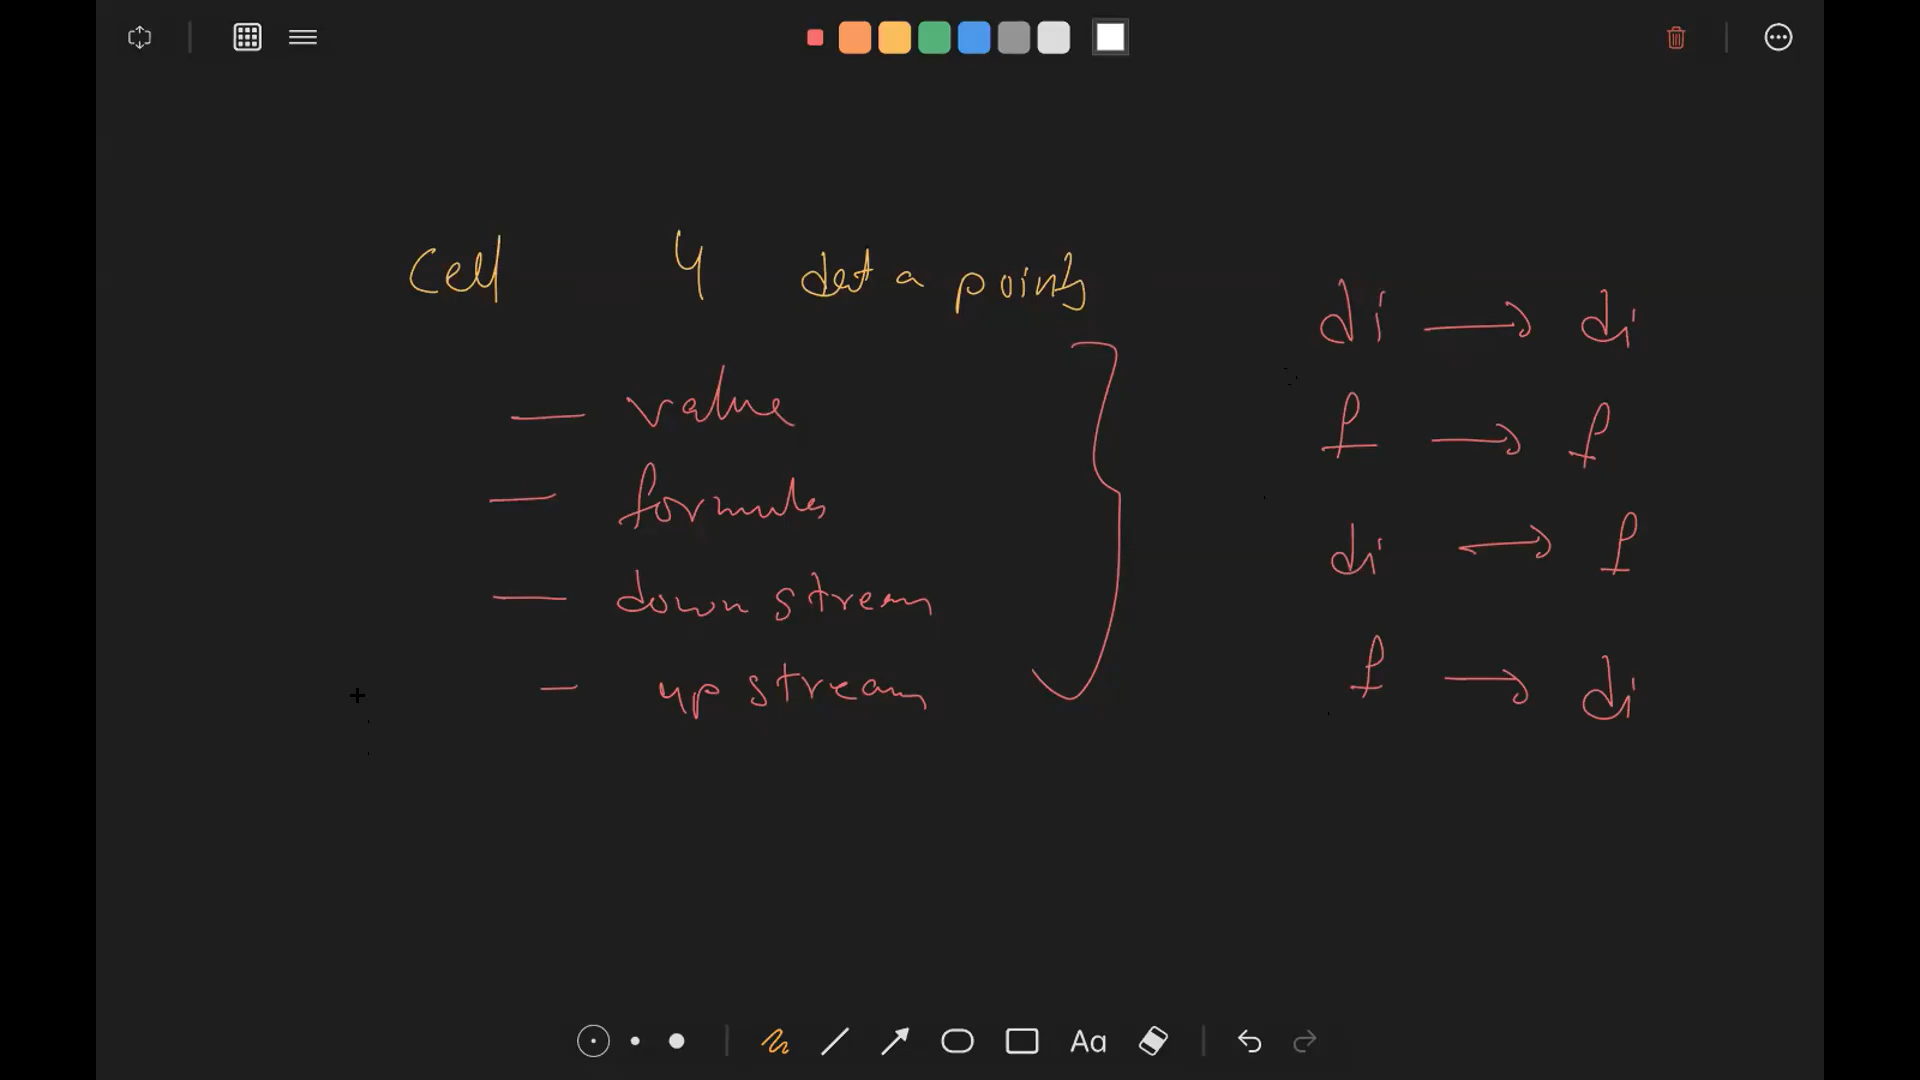 Cell 4 data points
— value
— formula
— down stream
- up stream
di → di
f → f
di → f
f → di
Aa